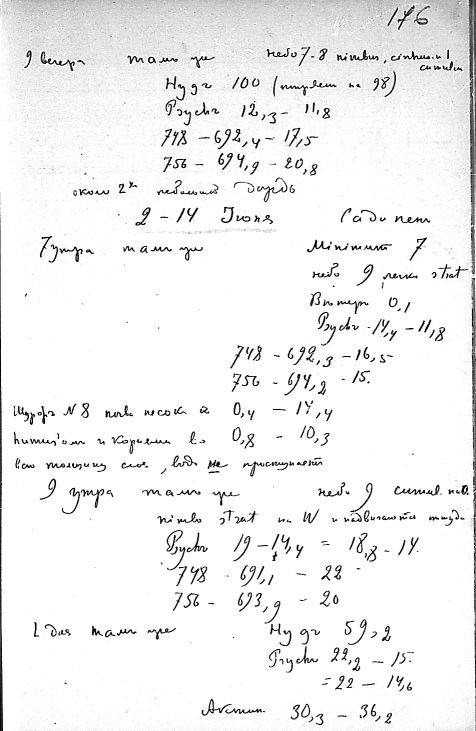 176
9 вечера там же небо 7-8 nimbus, cirrhus. и 1
cumulus
Hygr 100 (направлен на 98)
Psychr 12,3 - 11,8
748 - 692,4 - 17,5
756 - 694,9 - 20,8
около 2х небольшой дождь
2 - 14 Июня
7 утра там же Minimum 7
небо 9 легк. strat
Ветер 0,1
Psychr 14,4 - 11,8
748 - 692,3 - 16,5
756 - 694,2 - 15.
Шурф N 8 почва песок с 0,4 - 14,4
и корнями во 0,8 - 10,3
всю толщину слоя, вода не проступает
9 утра там же небо 9 cumul.
nimbo strat на W и надвигаются оттуда
Psychr 19 - 14,4 = 18,8 - 14.
748 - 691,1 - 22
756 - 693,9 - 20
1 дня там же Hygr 59,2
Psychr 22,2 - 15.
= 22 - 14,6
Актин. 30,3 - 36,2